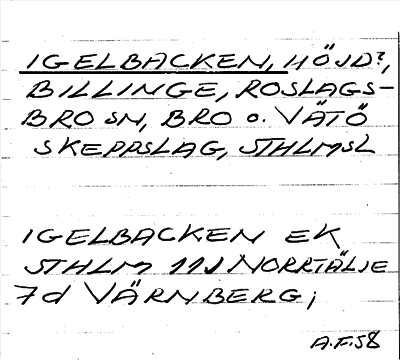 IGELBACKEN, HÖJD?,
BILLINGE, ROSLAGS-
BRO SN, BRO O. VÄTÖ
SKEPPSLAG, STHLMSL
IGELBACKEN EK
STHLM 11J NORRTÄLJE
7d VÄRNBERG;
A.F.58